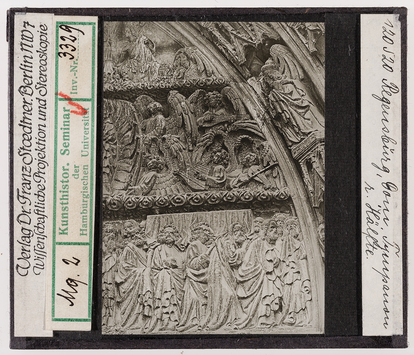 Verlag Dr. Franz Stoedtner, Berlin NW7
Wissenschaftliche Projektion und Stereoskopie
Mg. 2
Kunsthistor. Seminar
der
Hamburgischen Universität
Inv.-Nr.
3329
120520 Regensburg, Dom. Tympanon
r. Hälfte